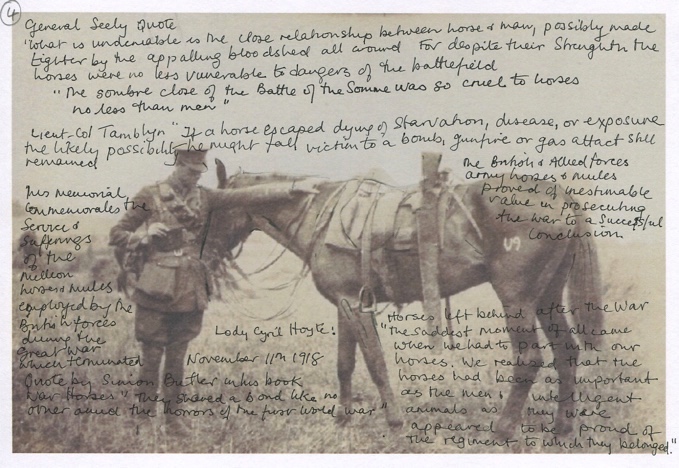 4
General Seely Quote
'What is undeniable is the close relationship between horse & man, possibly made
tighter by the appalling bloodshed all around For despite their Strength the
horses were no less vunerable to dangers of the battlefield
"The sombre close of the Battle of the Somme was so cruel to horses
no less than men"
Lieut-Col Tamblyn "If a horse escaped dying of Starvation, disease, or exposure
the likely possibility he might fall victim to a bomb, gunfire or gas attack still
remained
The British & Allied forces
army horses & mules
proved of inestimable
value in prosecuting
the war to a Successful
Conclusion
This Memorial
Commemorates the
Service &
Sufferings
of the
Million
horses & Mules
employed by the
British forces
during the
Great War
which terminated November 11th 1918
U9
Lady Cyril Hoyte:
Quote by Simon Butler in his book
War Horses "They shared a Bond like no
other amid the horrors of the first World war"
Horses left behind after the War
"The saddest moment of all came
when we had to part with our
horses. We realised that the
horses had been as important
as the men & intelligent
animals as they were
appeared to be proud of
the regiment to which they belonged."